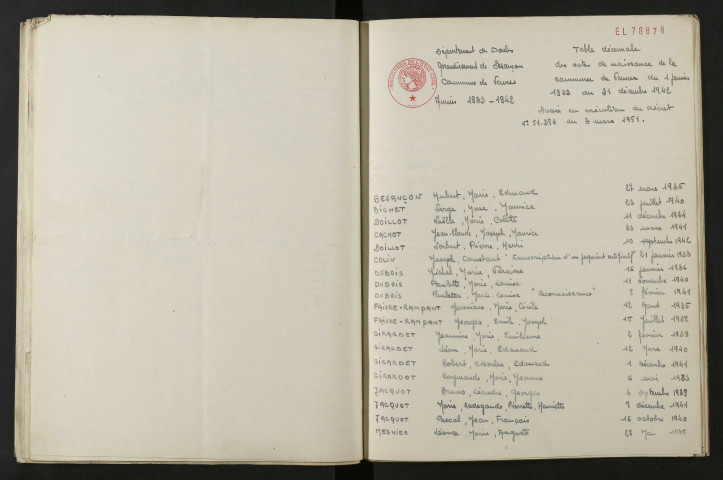 EL 76878
Département du Doubs
Arrondissement de Besançon
Commune de Vennes
Années 1933 - 1942
Table décennale
des actes de naissance de la
commune de Vennes du 1 janvier
1933 au 31 décembre 1942
en exécution du décret
n° 51.284 du 3 mars 1951.
BESANÇON Hubert, Marie, Edmond 27 mars 1935
BICHET Serge, Marc, Maurice 23 juillet 1940
BOILLOT Marie, Colette 11 décembre 1934
CACHOT Jean-Claude, Joseph, Maurice 23 mars 1941
BOILLOT Norbert, Pierre, Henri 10 septembre 1942
COLIN Joseph, Constant "transcription d'un jugement 21 janvier 1933
DUBOIS Michel, Marie, 16 janvier 1936
DUBOIS Paulette, Marie, Louise 11 novembre 1940
DUBOIS Paulette, Marie-Louise "Reconnaissance" février 1941
FAIVRE-RAMPANT Marie, Cécile 12 Aout 1935
FAIVRE-RAMPANT Georges, Emile, Joseph 15 juillet 1938
GIRARDET Jeannine, Marie, Emilienne 2 février 1939
GIRARDET Léon, Marie, Edouard 12 Mars 1940
GIRARDET Robert, Charles, Edouard 1 décembre 1941
GIRARDOT Raymonde, Marie, Jeanne 6 mai 1933
JACQUOT Bruno, Léandre, Georges 6 septembre 1939
JACQUOT Marie, Radegonde, Pierrette, Henriette décembre 1941
JACQUOT Pascal, Jean, François 16 octobre 1940
MESNIER Marie, Auguste 28 Mai